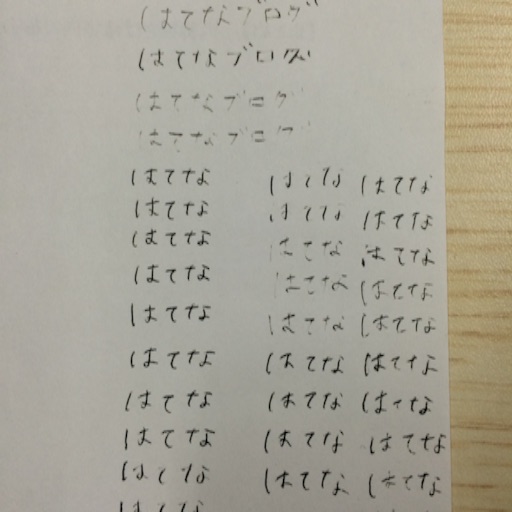 はてなブログ
はてなブログ
はてなブログ
はてなブログ
はてな はてな はてな
はてな はてな はてな
はてな はてな はてな
はてな はてな はてな
はてな はてな はてな
はてな はてな はてな
はてな はてな はてな
はてな はてな はてな
はてな はてな はてな
はてな